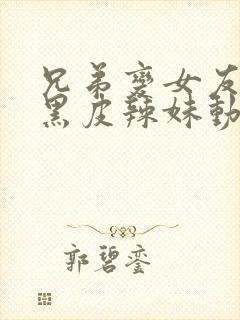 兄弟變女友
黑皮辣妹動
郭碧銮